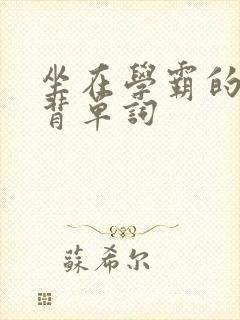 坐在學霸的
背單詞
蘇希尔